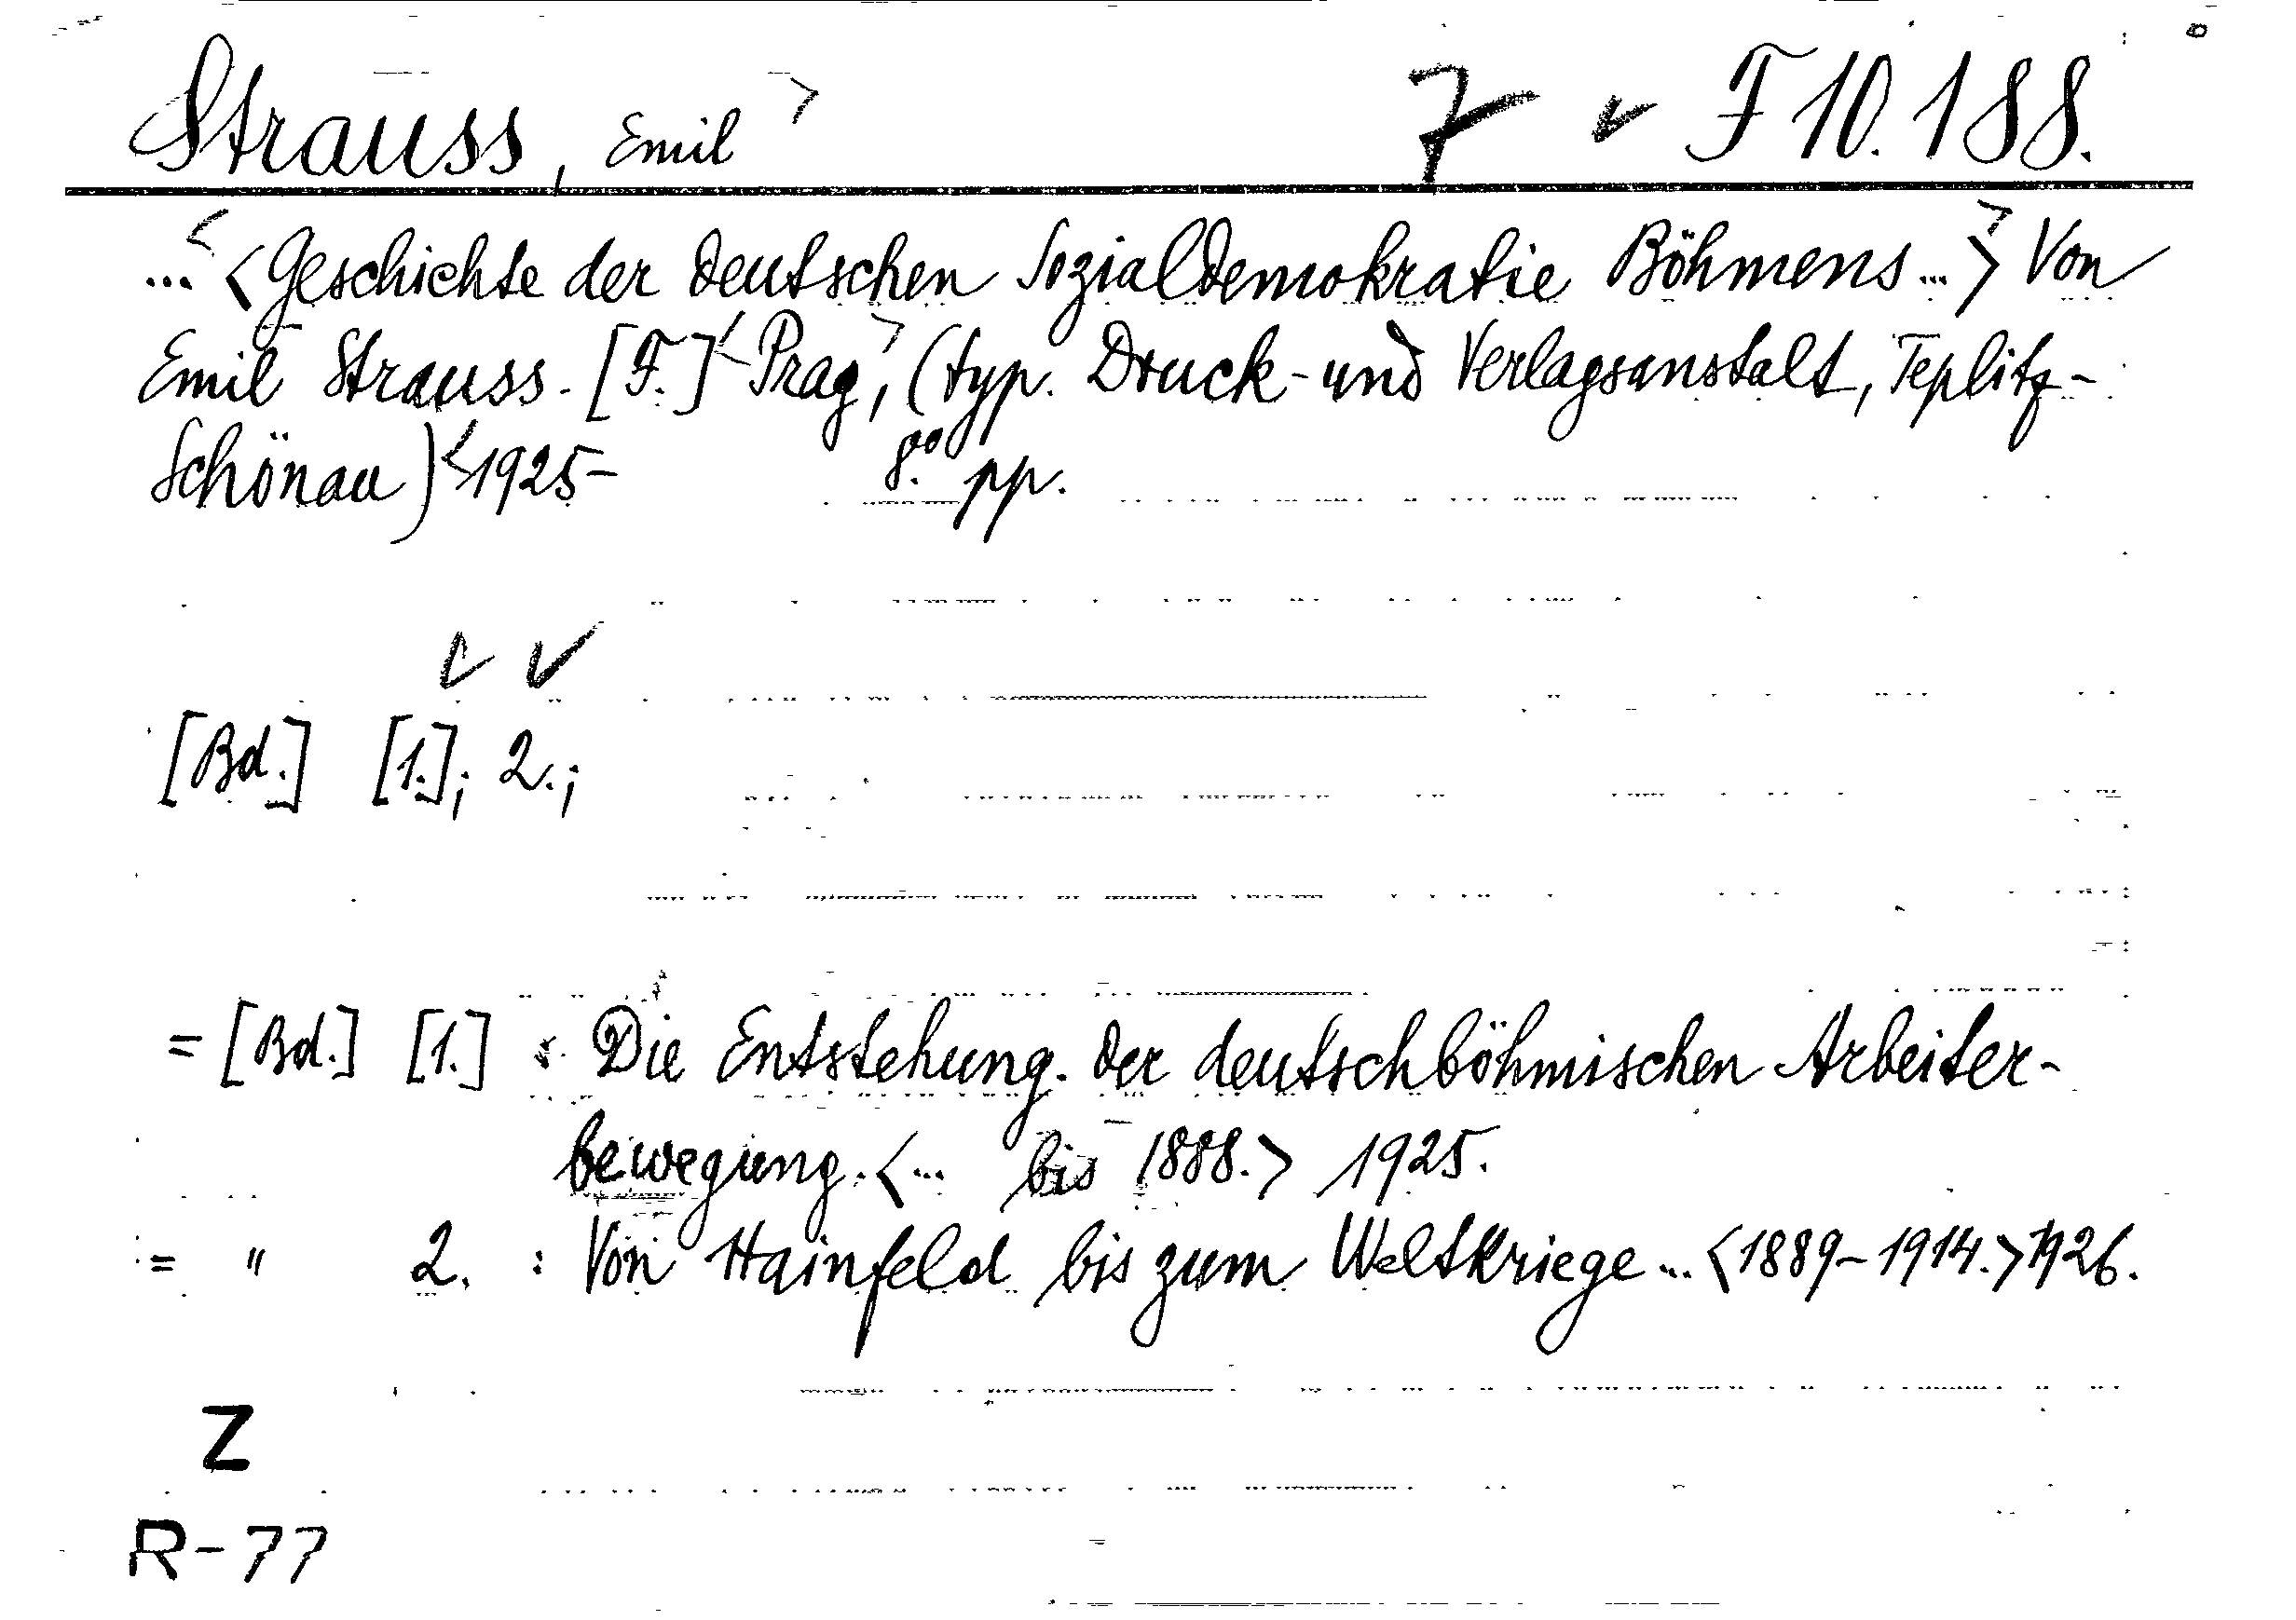 Strauss, Emil 7 F 10.188.
... <Geschichte der deutschen Sozialdemokratie Böhmens ...> Von
Emil Strauss. [F.] Prag, (typ. Druck- und Verlagsanstalt, Teplitz-
Schönau) 1925- 8.° pp.
[Bd.] [1.]; 2.;
= [Bd.] [1.] : Die Entstehung der deutschböhmischen Arbeiter-
bewegung. <... bis 1888.> 1925.
= " 2. : Von Hainfeld bis zum Weltkriege ... <1889-1914.> 1926.
Z
R-77